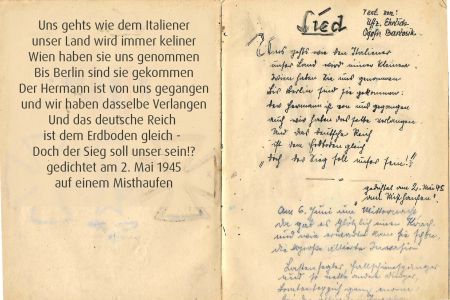 Uns gehts wie dem Italiener
unser Land wird immer keliner
Wien haben sie uns genommen
Bis Berlin sind sie gekommen
Der Hermann ist von uns gegangen
und wir haben dasselbe Verlangen
Und das deutsche Reich
ist dem Erdboden gleich -
Doch der Sieg soll unser sein!?
gedichtet am 2. Mai 1945
auf einem Misthaufen
Text von:
Uffz. Ehrlich
Lied
Uns gehts wie den Italiener
unser Land wird immer kleiner.
Wien haben sie uns genommen
Bis Berlin sind sie gekommen.
der Hermann ist von uns gegangen
auch wir haben das selbe Verlangen
Und das deutsche Reich
ist dem Erdboden gleich
doch der Sieg soll unser sein!?
gedichtet am 2. Mai 45
am Misthaufen!
Am 6. Juni um Mitternacht
da gab es plötzlich einen Krach
und wir
die große Invasion
Lastensegler, Fallschirmspringer
und so andere Dinger